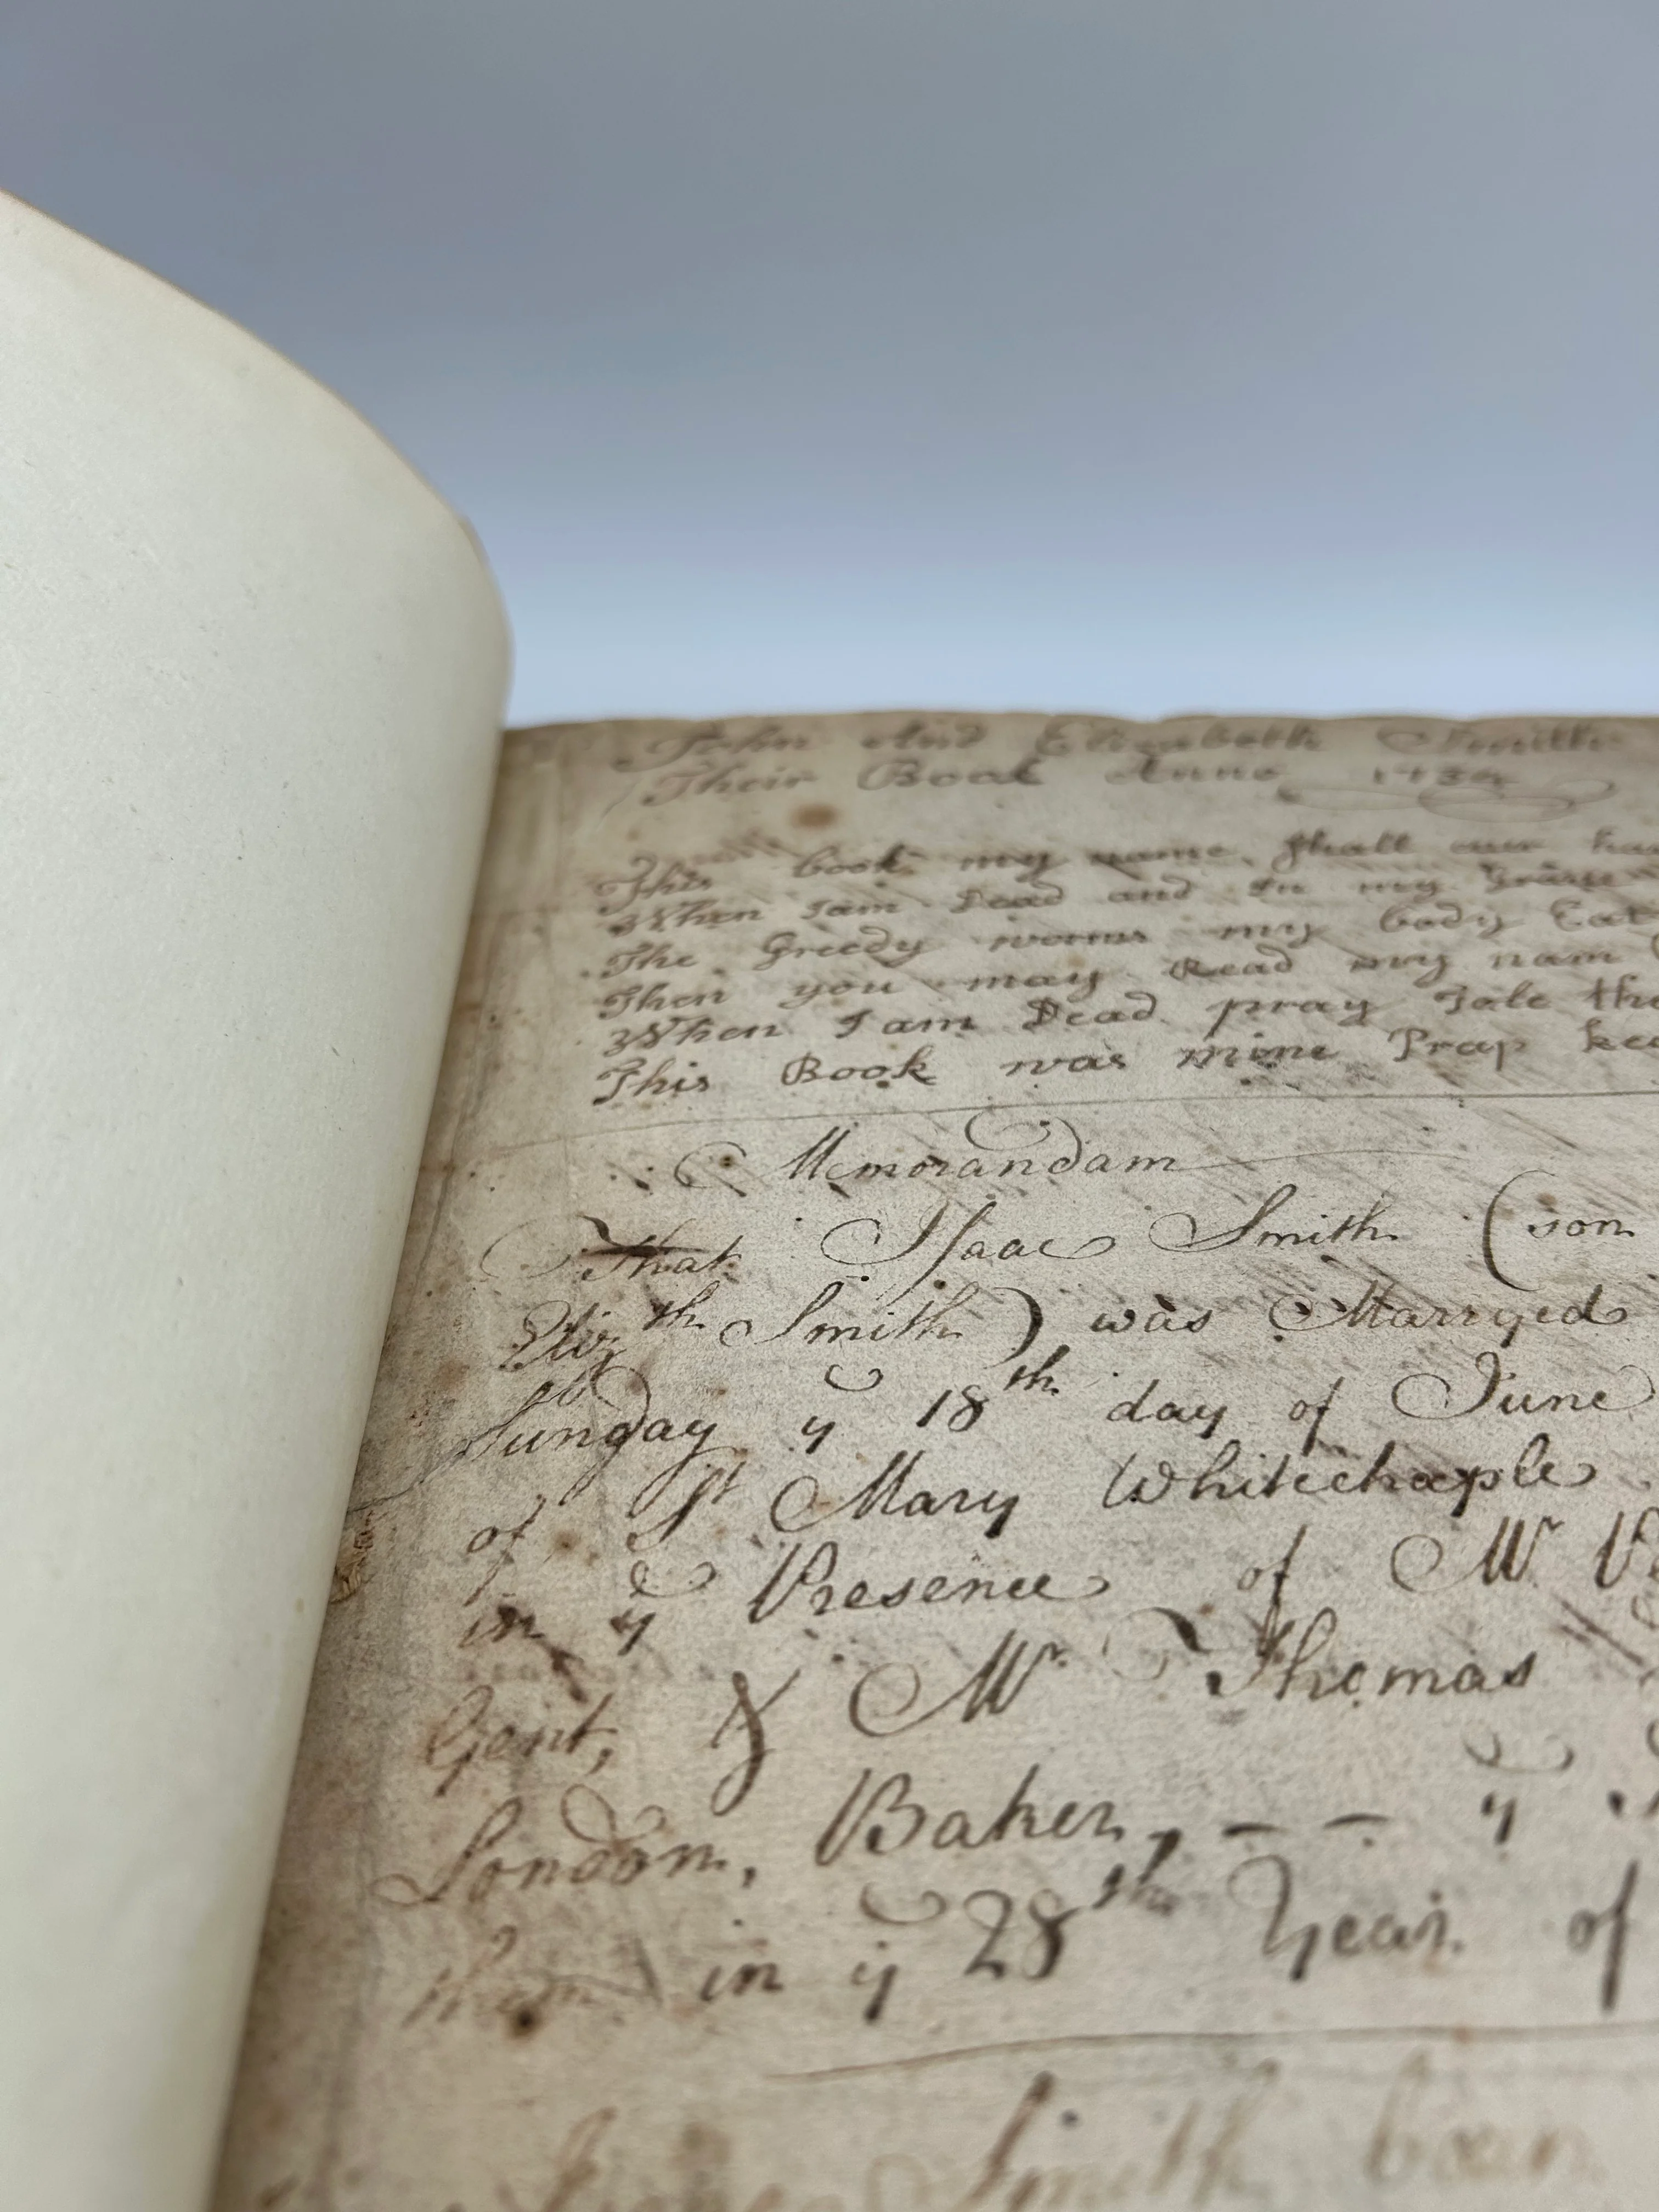 John And Elizabeth Smith
Their Book Anno
This book my name Shall
When I am Dead and In my Grave
The Greedy worms my body Eat
Then you may Read my nam
When I am Dead pray
This Book was mine Pray
Memorandam
That Isaac Smith (son
Eliz:th Smith) was Marryed
Sunday ye 18th day of June
of St Mary Whitechaple
in ye Presence of Mr
Gent, & Mr Thomas
London, Baker, – – ye
in ye 28th Year of
Smith